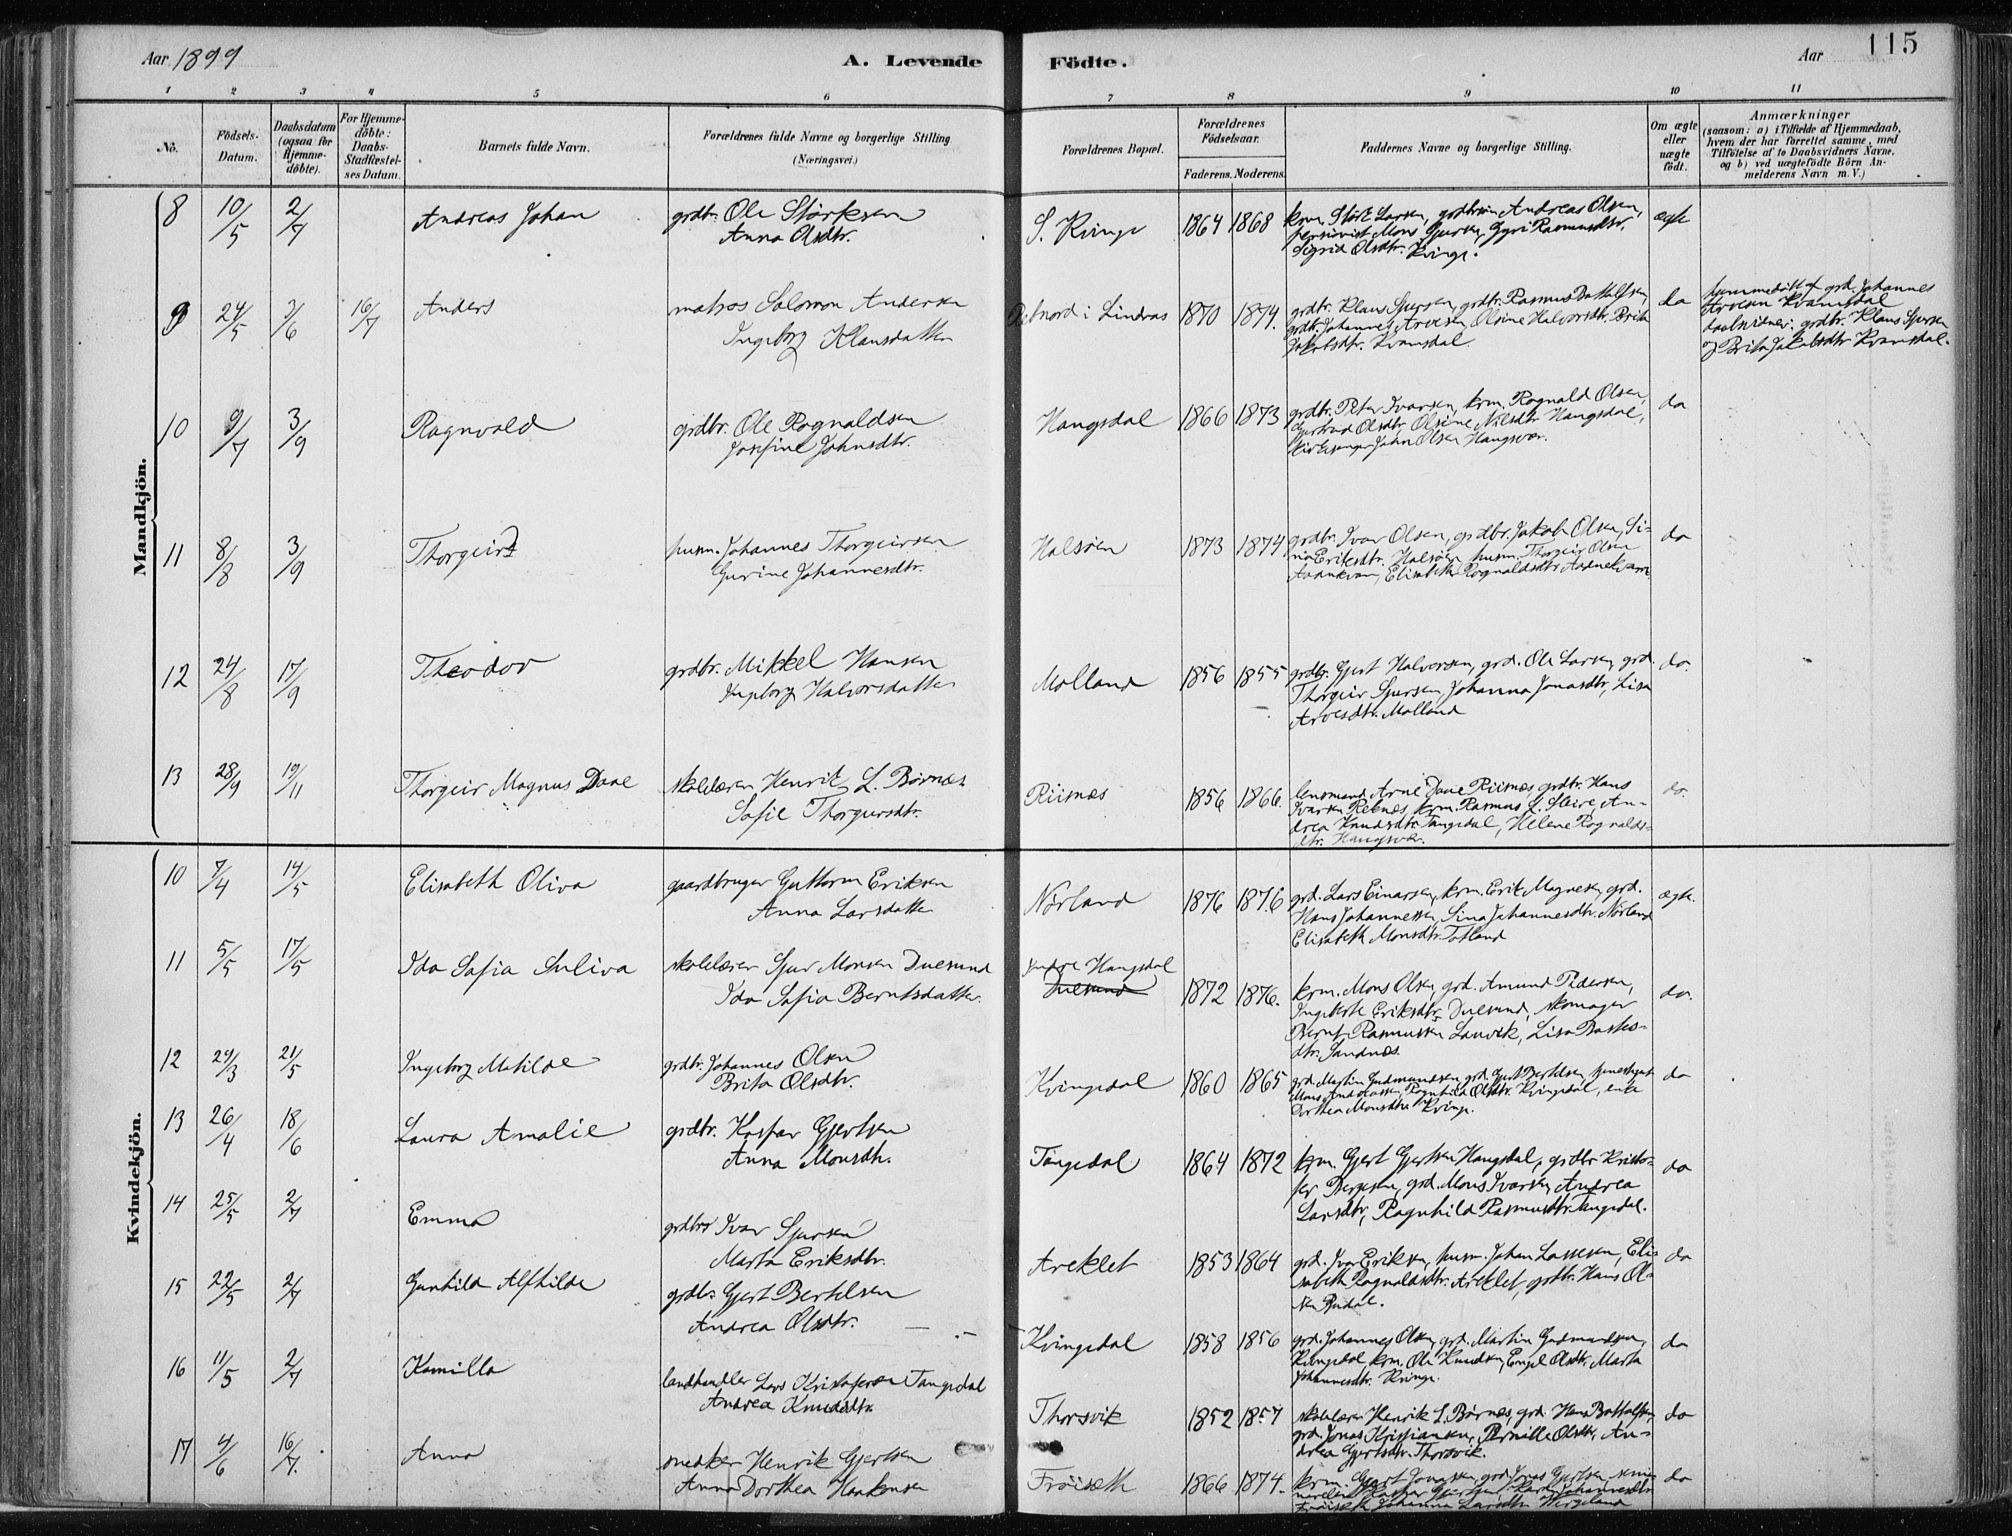 Aar 1899
A. Levende
Födte.
Aar
115
1 2 3 4 5 6 7 8 9 10 11
No.
Födsels-Datum.
Daabsdatum (ogsaa for Hjemme-döbte).
For Hjemme-döbte: Daabs-Stadfæstel-ses Datum.
Barnets fulde Navn.
Forældrenes fulde Navne og borgerlige Stilling (Næringsvei.)
Forældrenes Bopæl.
Forældrenes Födselsaar.
Faderens. Moderens.
Faddernes Navne og borgerlige Stilling.
Om ægte eller uægte födt.
Anmærkninger
(saasom: a) i Tilfælde af Hjemmedaab,
hvem der har forrettet samme, med
Tilföielse af to Daabsvidners Navne,
og b) ved uægtefödte Börn An-
melderens Navn m. V.)
Mandkjön.
8 10/5 2/7 Andreas Johan grdbr. Ole Störksen
Anna Olsdtr.
S. Kvinge 1864 1868 krm. Störk Larsen, Andreas Olsen,
Mons Gyri Rasmusdtr.
Sigrid Olsdtr. Kvinge.
ægte
9 24/5 3/6 16/7 Anders matros Salomon Andersen
Ingeborg Klausdatter
i Lindaas 1870 1874. grdbr. Klaus Sjursen, grdbr. Rasmus
grdbr. Johannes Arvesen, Olsine Halvorsdtr. Brita
Jakobsdtr. Kvamsdal
do
hjemmedöbt af grd. Johannes
Arvesen Kvamsdal
daabsvidner: grdbr. Klaus Sjursen
og Brita Jakobsdtr Kvamsdal.
10 9/7 3/9 Ragnvald grdbr. Ole Rognaldsen
Josefine Johnsdtr.
Haugsdal 1866 1873 grdbr. Peter Ivarsen, krm. Rognald Olsen,
Gjertrud Olsdtr. Olsine Nilsdtr Haugsdal,
Kirkesanger John Olsen Haugsvær.
do
11 8/8 3/9 Thorgeir husm. Johannes Thorgeirsen
Gurine Johannesdtr.
Halsöen 1873 1874 grdbr. Ivar Olsen, grdbr. Jakob Olsen, Si-
na Eriksdtr. Halsöen, husm. Thorgeir Olsen
Elisabeth Rognaldsdtr
do
12 24/8 17/9 Theodor grdbr. Mikkel Hansen
Ingeborg Halvorsdatter
Molland 1856 1855 grdbr. Gjert Halvorsen, grd. Ole Larsen, grd.
Thorgeir Sjursen, Johanna Jonasdtr, Lisa
Arvesdtr. Molland
do.
13 28/9 19/11 Thorgeir Magnus Daae skolelærer Henrik L. Börnæs
Sofie Thorgeirsdtr.
Riisnæs 1856 1866. lensmand Arne Daae Riisnæs, grdbr. Hans
Ivarsen Reknæs, krm. Rasmus L. An-
drea Knudsdtr. Tangedal, Helene Rognalds-
dtr. Haugsvær.
do.
Kvindekjön.
10 7/4 14/5 Elisabeth Oliva gaardbruger Guttorm Eriksen
Anna Larsdatter
Nörland 1876 1876 grd. Lars Einarsen, krm. Erik Magnesen, grd.
Hans Johannessen, Sina Johannesdtr. Nörland
Elisabeth Monsdtr. Totland
ægte.
11 5/5 17/5 Ida Sofia Suliva skolelærer Sjur Monsen Duesund
Ida Sofia Berntsdatter.
Indre Haugsdal
Duesund
1872 1876. krm. Mons Olsen, grd. Amund Pedersen,
Ingeborg Eriksdtr. Duesund, skomager
Bernt Rasmussen Lauvik, Lisa
dtr. Sandnæs.
do.
12 29/3 21/5 Ingeborg Matilde grdbr. Johannes Olsen
Brita Olsdtr.
Kvingedal 1860 1865 grd. Martin Gudmundsen, grd. Gjert Bertelsen, tjenestegut
Mons Andreassen, Ragnhild Olsdtr. Kvingedal, enke
Dorthea Monsdtr. Kvinge.
do
13 26/4 18/6 Laura Amalie grdbr. Kaspar Gjertsen
Anna Monsdtr.
Tangedal 1864 1872 krm. Gjert Gjertsen Haugsdal, grdbr Kristo-
fer Børgesen, grd. Mons Ivarsen, Andrea
Larsdtr, Ragnhild Rasmusdtr Tangedal.
do
14 25/5 2/7 Emma grdbr Ivar Sjursen
Marta Eriksdtr.
Areklet 1853 1864 grd. Ivar Eriksen, husm. Johan Lassesen, Eli-
sabeth Rognaldsdtr. Areklet, grdbr. Hans Ol-
sen
do
15 22/5 2/7 Gunhilda Alfhilde grdbr. Gjert Bertelsen
Andrea Olsdtr.
Kvingedal 1858 1856 grd. Johannes Olsen, grd. Martin Gudmundsen,
Kvingedal, krm. Ole Knudsen, Engel Olsdtr. Marta
Johannesdtr. Kvinge.
do
16 11/5 2/7 Kamilla landhandler Lars Kristofersen Tangedal
Andrea Knudsdtr
Thorsvik 1852 1857 skolelærer Henrik L. Börnæs, grd. Hans
grd. Jonas Kristiansen, Pernille Olsdtr. An-
drea Gjertsdtr. Thorsvik.
do
17 4/6 16/7. Anna snedker Henrik Gjertsen
Anna Dorthea Haakonsen
Fröiseth 1866 1874. krm. Gjert Jonassen, grd. Jonas Gjertsen,
Kaspar Gjertsen, Johannesdtr.
Fröiseth, Johanna Larsdtr. Hergeland
do